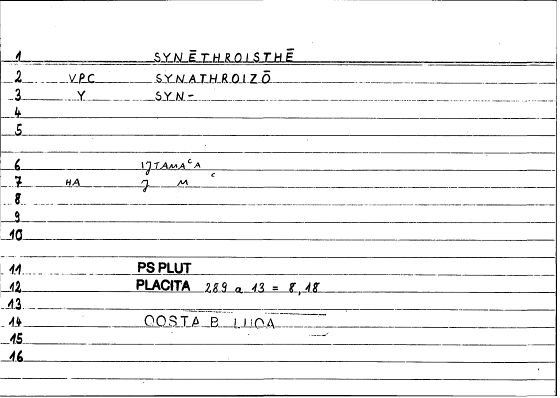 1 SYNĒTHROISTHĒ
2 VPC SYNATHROIZŌ
3 Y SYN-
4
5
6 IJTAMAᶜA
7 HA J M ᶜ
8
9
10
11 PS PLUT
12 PLACITA 289 a 13 = 8,18
13
14 QOSTA B. LUQA
15
16